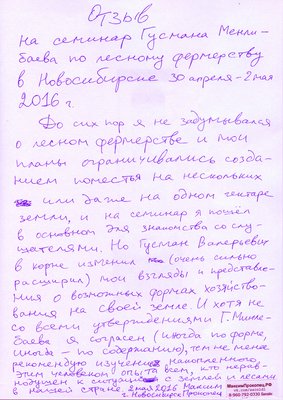 Отзыв
на семинар Гусмана Минли-
баева по лесному фермерству
в Новосибирске 30 апреля - 2 мая
2016 г.
До сих пор я не задумывался
о лесном фермерстве и мои
планы ограничивались созда-
нием поместья на нескольких
или даже на одном гектаре
земли, и на семинар я пошёл
в основном для знакомства со слу-
шателями. Но Гусман Валерьевич
в корне изменил (очень сильно
расширил) мои взгляды и представле-
ния о возможных формах хозяйство-
вания на своей земле. И хотя не
со всеми утверждениями Г. Минли-
баева я согласен (иногда по форме,
иногда - по содержанию), тем не менее
рекомендую изучение накопленного
этим человеком опыта всем, кто нерав-
нодушен к ситуации с землёй и лесами
в нашей стране. 2 мая 2016 Максим
г. Новосибирск Прокопец
МаксимПрокопец.РФ
8-960-792-0330